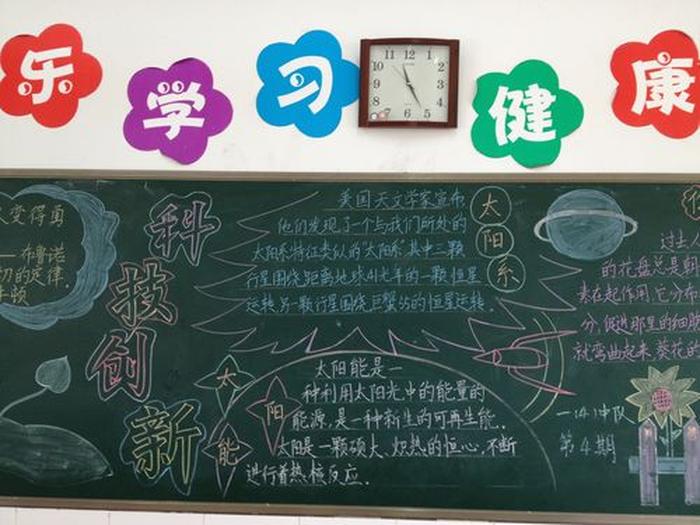 乐 学 习 健 康
11 12 1
10 2
9 3
8 4
7 6 5
变得勇
布鲁诺
切的定律.
牛顿
科
技
创
新
太
阳
系
美国天文学家宣布
他们发现了一个与我们所处的
太阳系特征类似的"太阳系"其中三颗
行星围绕距离地球41光年的一颗恒星
运转,另一颗行星围绕巨蟹55的恒星运转.
太
阳
能
太阳能是一
种利用太阳光中的能量的
能源,是一种新生的可再生能.
太阳是一颗硕大、炽热的恒心,不断
进行着热核反应.
过去
的花盘总是朝
素在起作用.它分布
分,促进那里的细胞
就弯曲起来.葵花的
一(4)中队
第4期